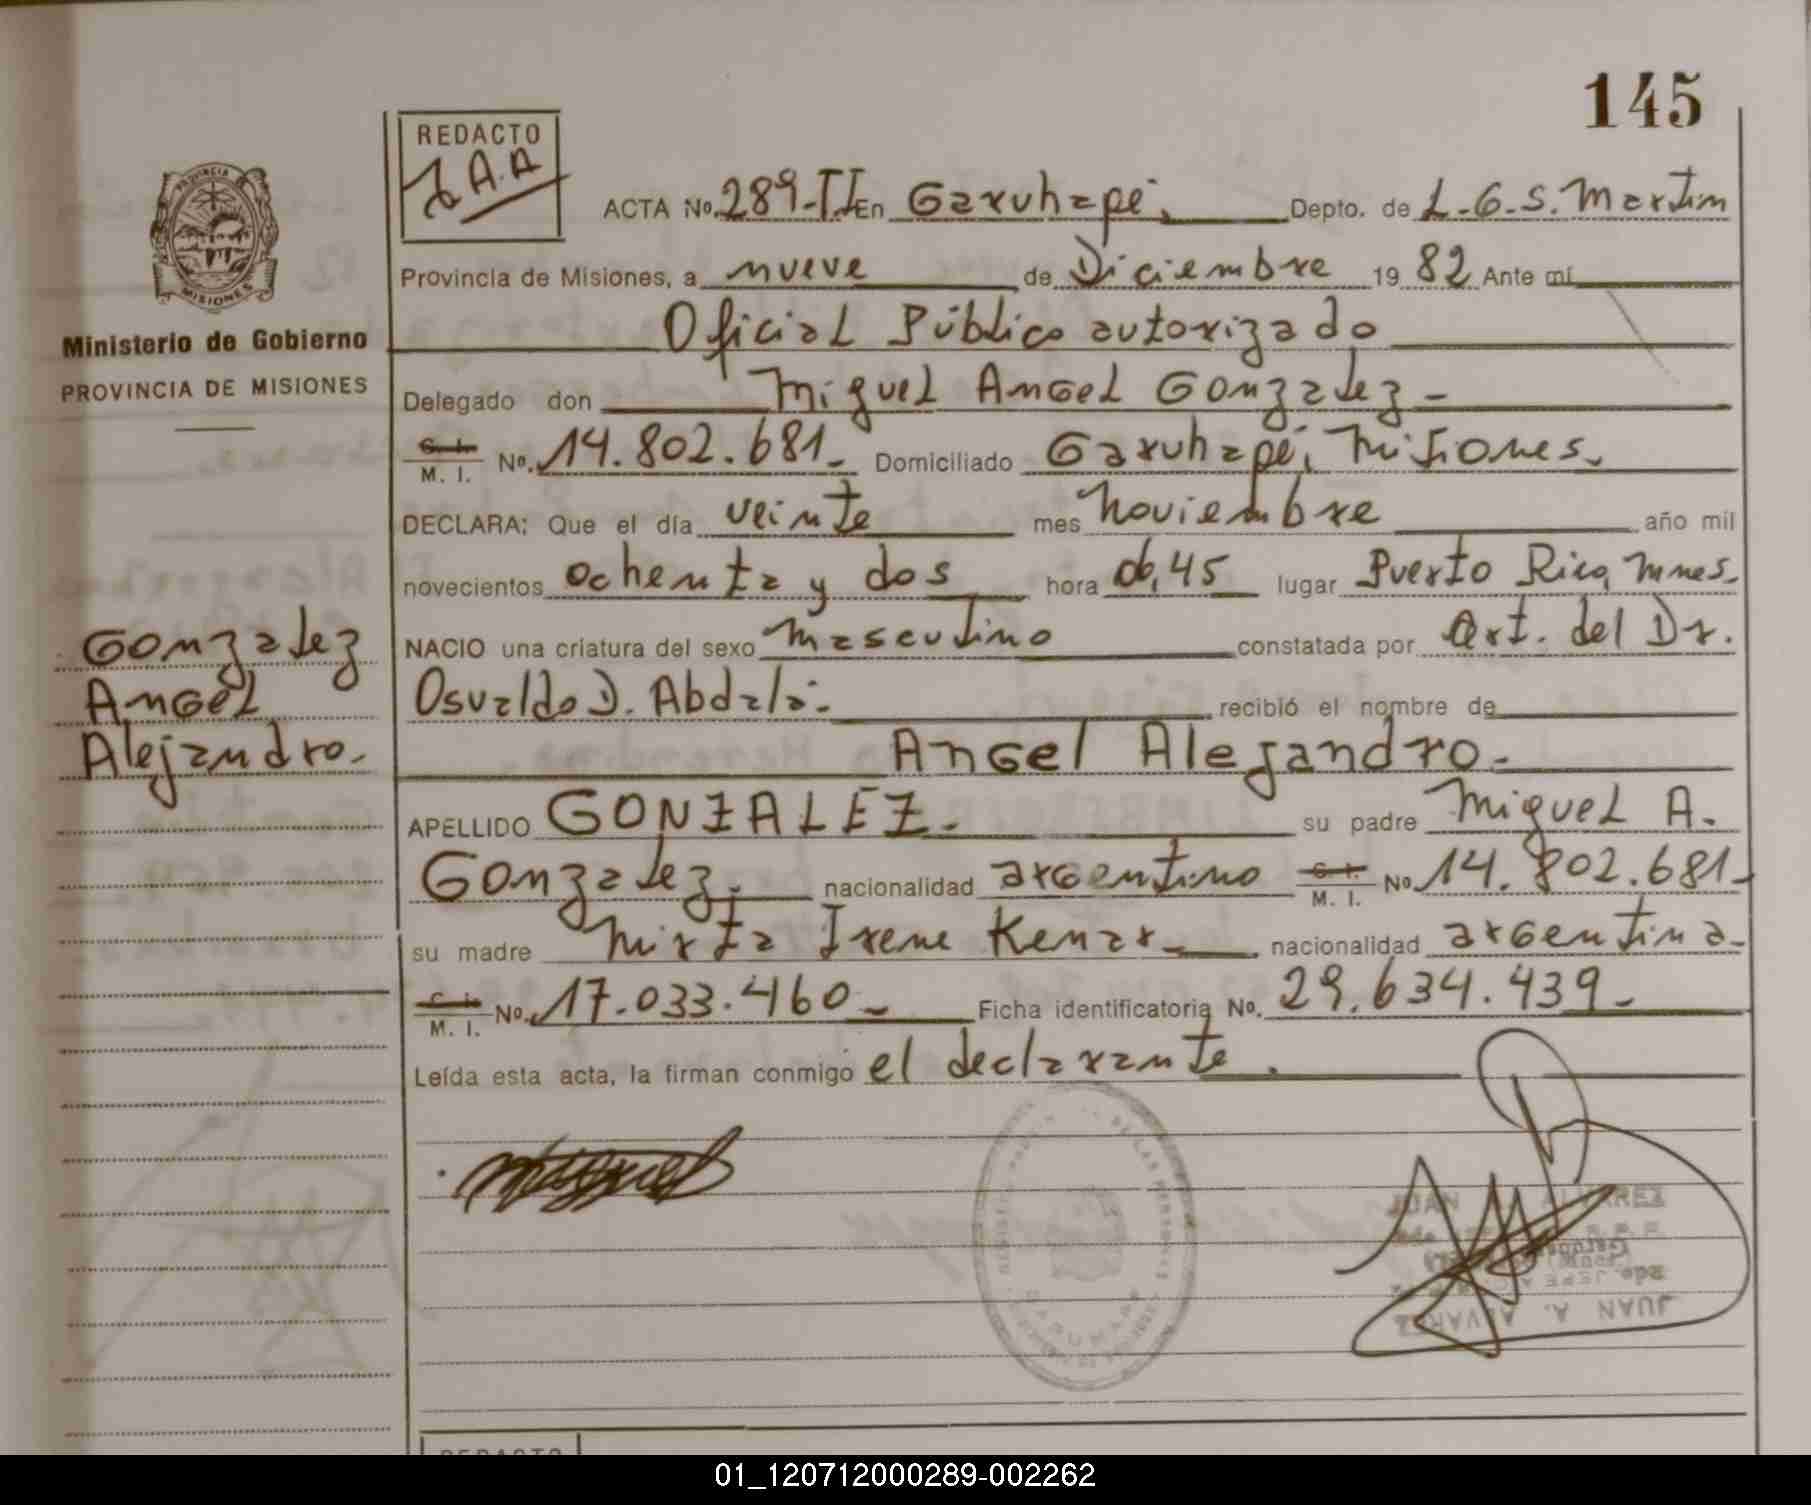 145
REDACTO
J A.A
ACTA No. 289-T.I En Garuhapé. Depto. de L.G.S. Martin
Provincia de Misiones, a nueve de Diciembre 19 82 Ante mí
Oficial Público autorizado
Ministerio de Gobierno
PROVINCIA DE MISIONES
Delegado don Miguel Angel Gonzalez -
C. I. M. I. No. 14.802.681- Domiciliado Garuhapé, Misiones.
DECLARA: Que el día veinte mes Noviembre año mil
novecientos ochenta y dos hora 06,45 lugar Puerto Rico, Mnes.
NACIO una criatura del sexo masculino constatada por Art. del Dr.
Osvaldo D. Abdala. recibió el nombre de
Angel Alejandro.-
Gonzalez
Angel
Alejandro.-
APELLIDO GONZALEZ.- su padre Miguel A.
Gonzalez. nacionalidad argentino C. I. M. I. No. 14.802.681-
su madre Mirta Irene Kenar- nacionalidad argentina-
C. I. M. I. No. 17.033.460- Ficha identificatoria No. 29.634.439-
Leída esta acta, la firman conmigo el declarante.
Miguel
JUAN A. ALVAREZ
01_120712000289-002262